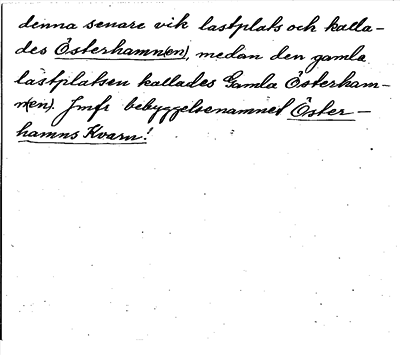 denna senare vik lastplats och kalla-
des Österhamn(en), medan den gamla
lastplatsen kallades Gamla Österham-
n(en). Jmfr bebyggelsenamnet Öster-
hamns Kvarn!